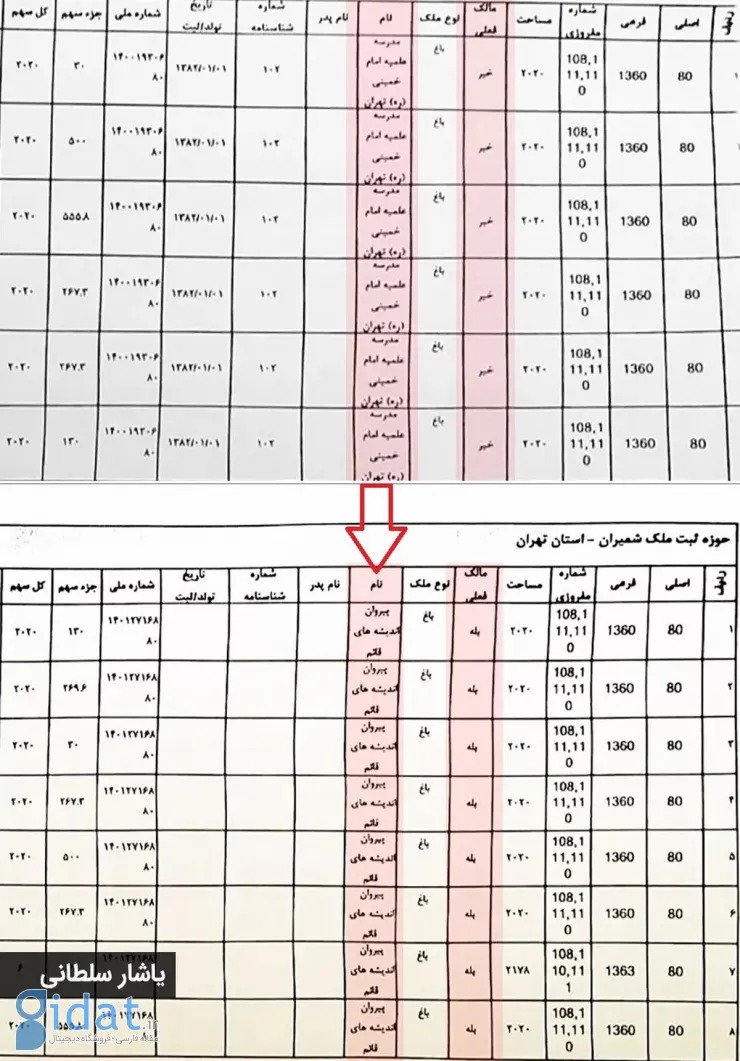 ردیف اصلی فرعی شماره مفروزی مساحت مالک فعلی نوع ملک نام نام پدر شماره شناسنامه تاریخ تولد/ثبت شماره ملی جزء سهم کل سهم
۱ 80 1360 108,111,110 ۲۰۲۰ خیر باغ مدرسه علمیه امام خمینی (ره) تهران ۱۰۲ ۱۳۸۲/۰۱/۰۱ ۱۴۰۰۱۹۳۰۶۸۰ ۳۰ ۲۰۲۰
80 1360 108,111,110 ۲۰۲۰ خیر باغ مدرسه علمیه امام خمینی (ره) تهران ۱۰۲ ۱۳۸۲/۰۱/۰۱ ۱۴۰۰۱۹۳۰۶۸۰ ۵۰۰ ۲۰۲۰
80 1360 108,111,110 ۲۰۲۰ خیر باغ مدرسه علمیه امام خمینی (ره) تهران ۱۰۲ ۱۳۸۲/۰۱/۰۱ ۱۴۰۰۱۹۳۰۶۸۰ ۵۵۵.۸ ۲۰۲۰
80 1360 108,111,110 ۲۰۲۰ خیر باغ مدرسه علمیه امام خمینی (ره) تهران ۱۰۲ ۱۳۸۲/۰۱/۰۱ ۱۴۰۰۱۹۳۰۶۸۰ ۲۶۷.۳ ۲۰۲۰
80 1360 108,111,110 ۲۰۲۰ خیر باغ مدرسه علمیه امام خمینی (ره) تهران ۱۰۲ ۱۳۸۲/۰۱/۰۱ ۱۴۰۰۱۹۳۰۶۸۰ ۲۶۷.۳ ۲۰۲۰
80 1360 108,111,110 ۲۰۲۰ خیر باغ مدرسه علمیه امام خمینی (ره) تهران ۱۰۲ ۱۳۸۲/۰۱/۰۱ ۱۴۰۰۱۹۳۰۶۸۰ ۱۳۰ ۲۰۲۰
حوزه ثبت ملک شمیران - استان تهران
ردیف اصلی فرعی شماره مفروزی مساحت مالک فعلی نوع ملک نام نام پدر شماره شناسنامه تاریخ تولد/ثبت شماره ملی جزء سهم کل سهم
۱ 80 1360 108,111,110 ۲۰۲۰ بله باغ پیروان اندیشه های قائم ۱۴۰۱۲۷۱۶۸۸۰ ۱۳۰ ۲۰۲۰
۲ 80 1360 108,111,110 ۲۰۲۰ بله باغ پیروان اندیشه های قائم ۱۴۰۱۲۷۱۶۸۸۰ ۲۶۹.۶ ۲۰۲۰
۳ 80 1360 108,111,110 ۲۰۲۰ بله باغ پیروان اندیشه های قائم ۱۴۰۱۲۷۱۶۸۸۰ ۳۰ ۲۰۲۰
۴ 80 1360 108,111,110 ۲۰۲۰ بله باغ پیروان اندیشه های قائم ۱۴۰۱۲۷۱۶۸۸۰ ۲۶۷.۳ ۲۰۲۰
۵ 80 1360 108,111,110 ۲۰۲۰ بله باغ پیروان اندیشه های قائم ۱۴۰۱۲۷۱۶۸۸۰ ۵۰۰ ۲۰۲۰
۶ 80 1360 108,111,110 ۲۰۲۰ بله باغ پیروان اندیشه های قائم ۱۴۰۱۲۷۱۶۸۸۰ ۲۶۷.۳ ۲۰۲۰
۷ 80 1363 108,110,111 ۲۱۷۸ بله باغ پیروان اندیشه های قائم ۶
۸ 80 1360 108,111,110 ۲۰۲۰ بله باغ پیروان اندیشه های قائم ۵۵۵.۸ ۲۰۲۰
یاشار سلطانی
Gidat.ir
مقاله فارسی، فروشگاه دیجیتال